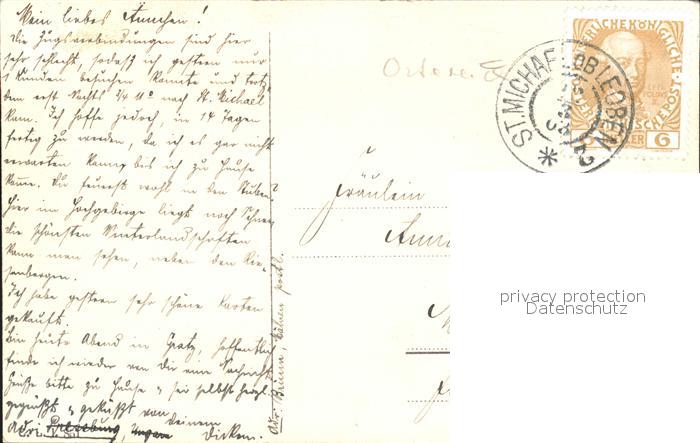 Mein liebes Annchen!
Die Zugsverbindungen sind hier
sehr schlecht, sodaß ich gestern nur
Kunden besuchen konnte und trotz-
dem erst Nachts 3/4 11° nach St. Michael
kam. Ich hoffe jedoch, in 14 Tagen
fertig zu werden, da ich es gar nicht
erwarten kann, bis ich zu Hause
komme. Du feuerst wohl in den Stuben?
Hier im Hochgebirge liegt noch Schnee,
die schönsten Winterlandschaften
kann man sehen, neben den Rie-
senbergen.
Ich habe gestern sehr schöne Karten
gekauft.
Bin heute Abend in Graz, hoffentlich
finde ich wieder von dir eine Nachricht.
Grüße bitte zu Hause & sei selbst herzl.
gegrüßt & geküßt von
deinem
Dicken.
Adr. Pressburg, Ungarn
Adr. Brünn, postl.
Fräulein
ST. MICHAEL OB LEOBEN
6
privacy protection
Datenschutz